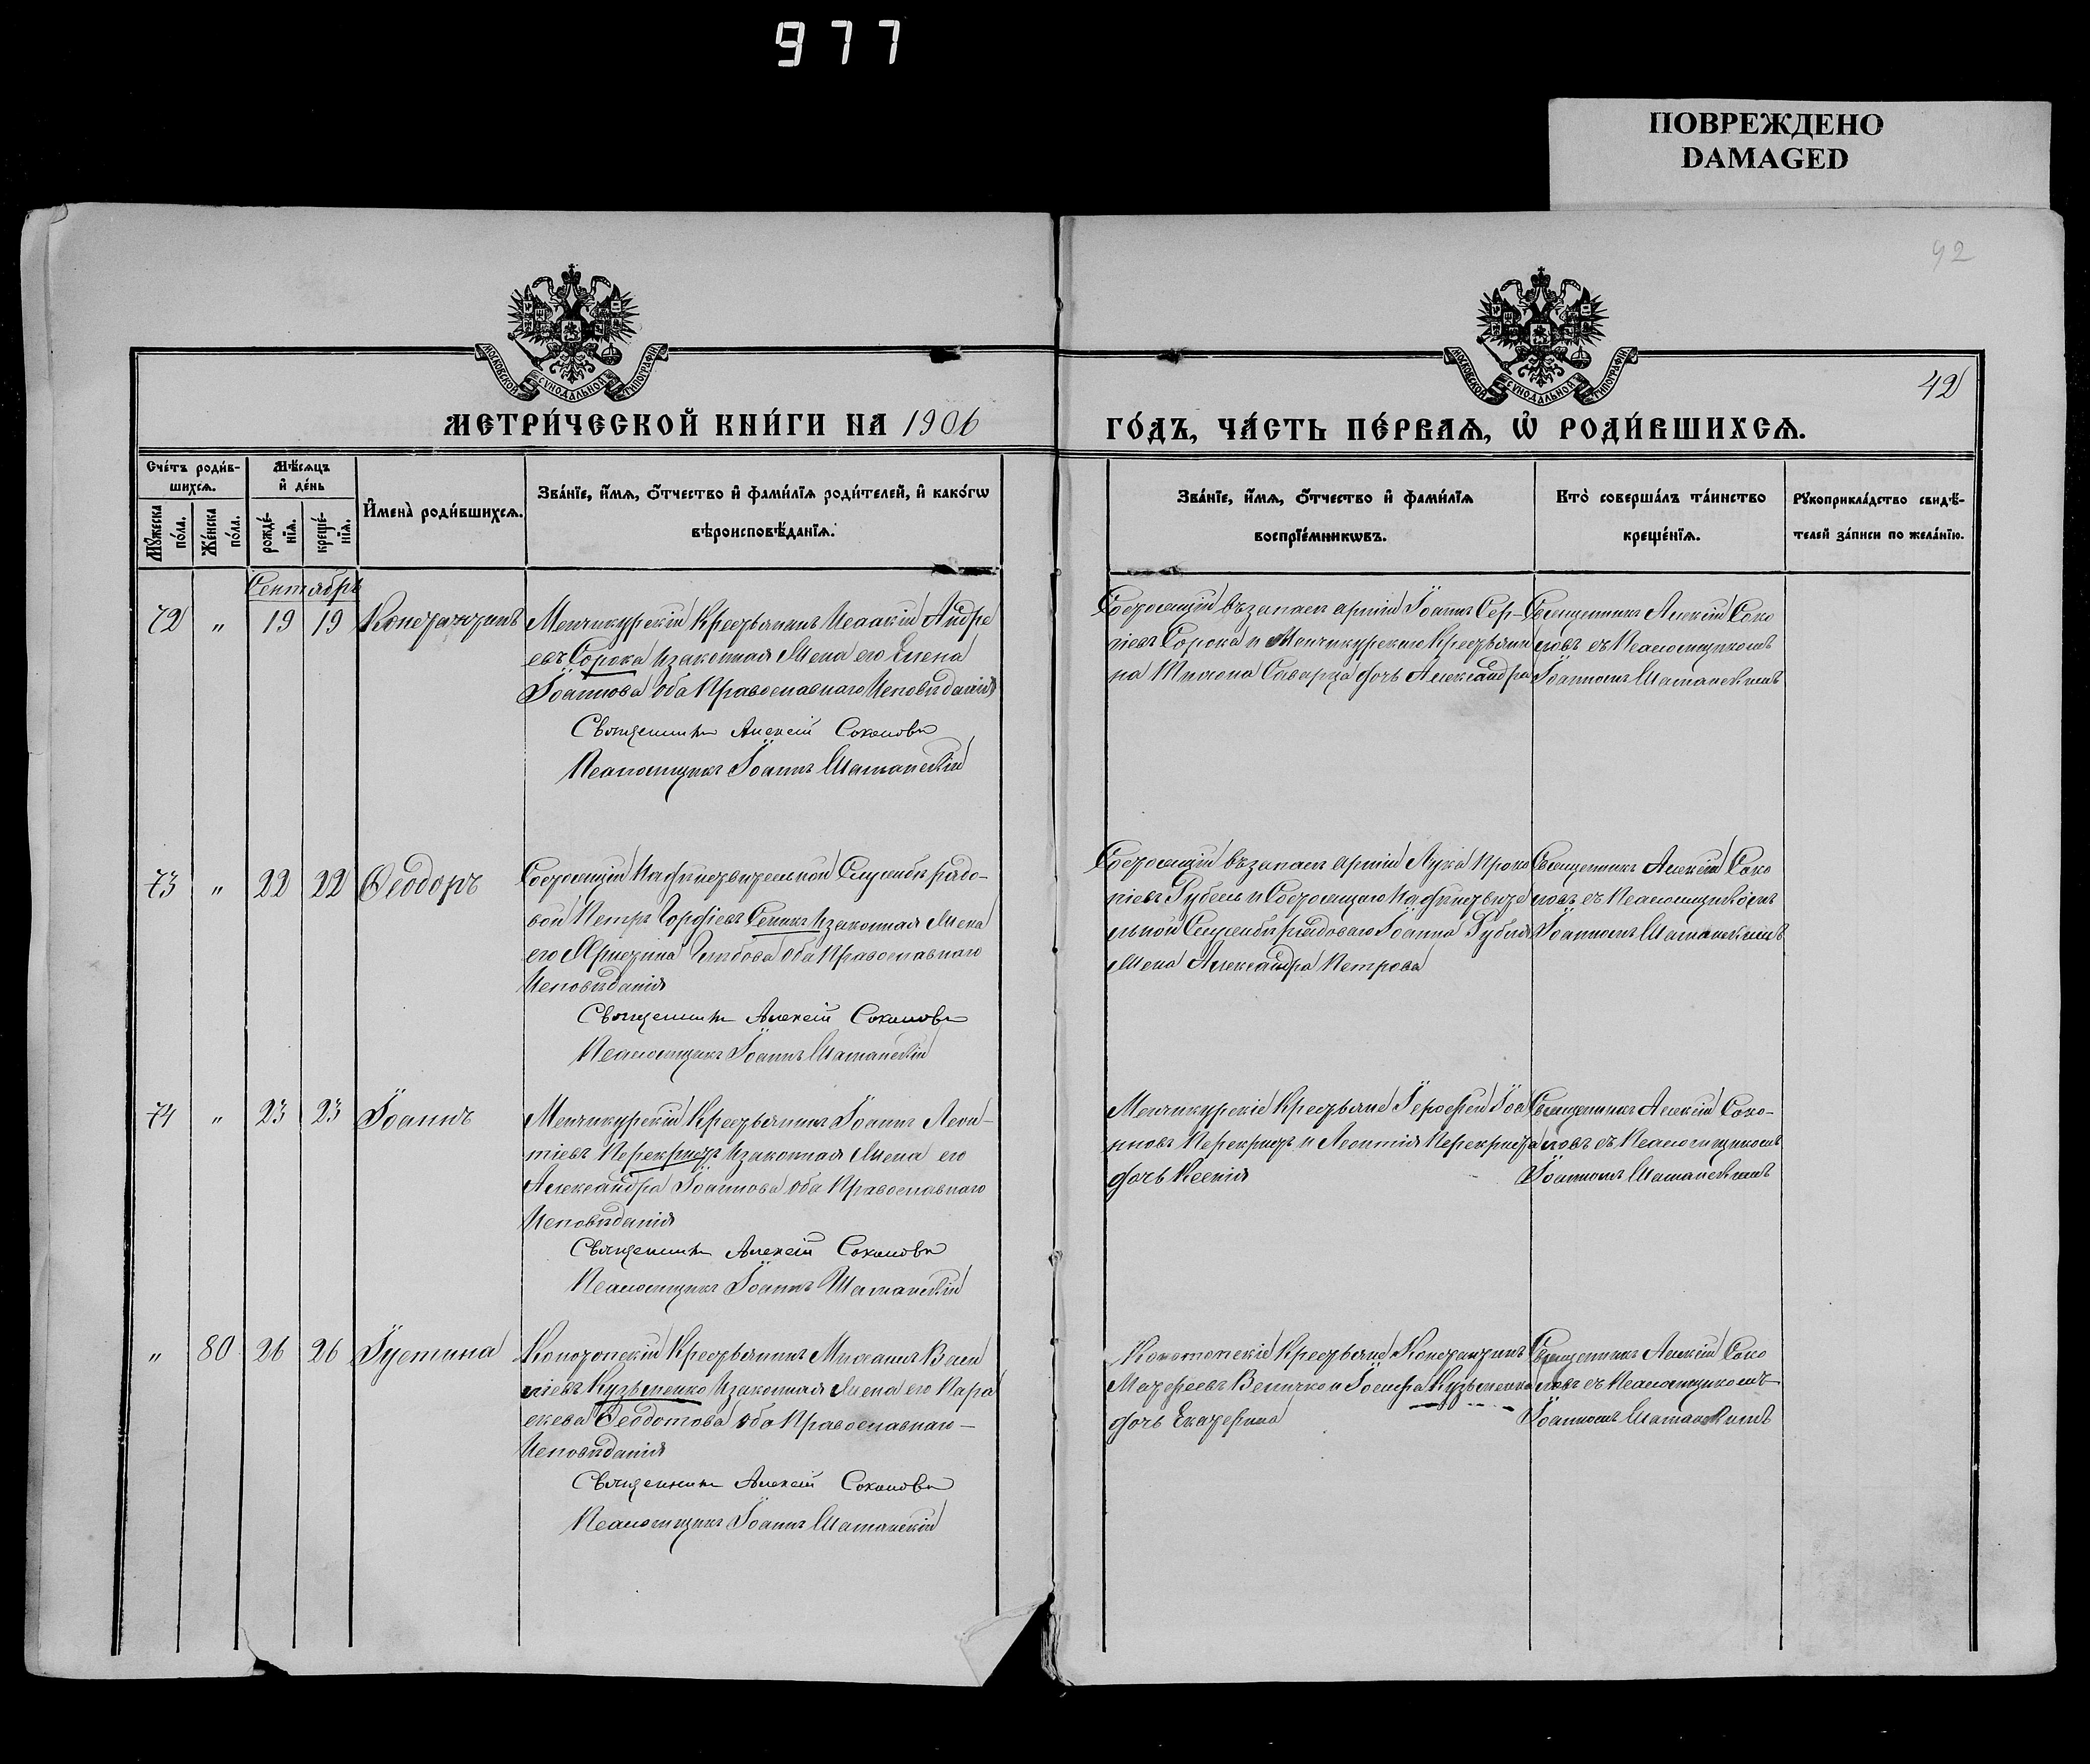 977
ПОВРЕЖДЕНО
DAMAGED
42
МОСКОВСКОЙ СУНОДАЛЬНОЙ ТИПОГРАФІИ
МОСКОВСКОЙ СУНОДАЛЬНОЙ ТИПОГРАФІИ
42
МЕТРИ́ЧЕСКОЙ КНИ́ГИ НА 1906
ГО́ДЪ, ЧА́СТЬ ПЕ́РВАѦ, Ѡ҆ РОДИ́ВШИХСѦ.
Сче́тъ роди́в-
шихсѧ.
Мѣ́сѧцъ
и҆ де́нь
Мꙋ́жеска
по́ла.
Же́нска
по́ла.
рожде́-
нїѧ.
креще́-
нїѧ.
И҆мена̀ роди́вшихсѧ.
Зва́нїе, и҆́мѧ, ѻ҆́тчество и҆ фами́лїѧ роди́телей, и҆ како́гѡ
вѣроисповѣ́данїѧ.
Зва́нїе, и҆́мѧ, ѻ҆́тчество и҆ фами́лїѧ
воспрїе́мникѡвъ.
Кто̀ соверша́лъ та́инство
креще́нїѧ.
Рꙋкоприкла́дство свидѣ́-
телей за́писи по жела́нїю.
Сентябрь
72 " 19 19 Константинъ
Менчикурскій Крестьянинъ Исаакій Андре
евъ Сорока и законная жена его Елена
Іоаннова оба Православнаго Исповѣданія
Священникъ Алексій Соколовъ
Псаломщикъ Іоаннъ Шаманскій
Состоящій въ запасѣ арміи Іоаннъ Сер-
гіевъ Сорока и Менчикурскаго Крестьяни
на Тихона дочь Александра
Священникъ Алексій Соко
ловъ съ Псаломщикомъ
Іоанномъ Шаманскимъ
73 " 22 22 Ѳеодоръ
Состоящій на дѣйствительной Службѣ рядо-
вой Петръ Горѳіевъ и законная жена
его Христина Глѣбова оба Православнаго
Исповѣданія
Священникъ Алексій Соколовъ
Псаломщикъ Іоаннъ Шаманскій
Состоящій въ запасѣ арміи Лука Проко
піевъ Губель и Состоящаго на дѣйствите
льной Службѣ рядоваго Іоанна Губеля
жена Александра Петрова
Священникъ Алексій Соко
ловъ съ Псаломщикомъ
Іоанномъ Шаманскимъ
74 " 23 23 Іоаннъ
Менчикурскій Крестьянинъ Іоаннъ Леон-
тіевъ Перекристъ и законная жена его
Александра Іоаннова оба Православнаго
Исповѣданія
Священникъ Алексій Соколовъ
Псаломщикъ Іоаннъ Шаманскій
Менчикурскіе Крестьяне Іероѳей Іоа
нновъ Перекристъ и Леонтія Перекриста
дочь Ксенія
Священникъ Алексій Соко-
ловъ съ Псаломщикомъ
Іоанномъ Шаманскимъ
" 80 26 26 Іустина
Конотопскій Крестьянинъ Михаилъ Васи
ліевъ Кузьменко и законная жена его Пара
скева Ѳеодотова оба Православнаго
Исповѣданія
Священникъ Алексій Соколовъ
Псаломщикъ Іоаннъ Шаманскій
Конотопскіе Крестьяне Константинъ
Матѳеевъ Величко и Іосифа Кузьменка
дочь Екатерина
Священникъ Алексій Соко
ловъ съ Псаломщикомъ
Іоанномъ Шаманскимъ